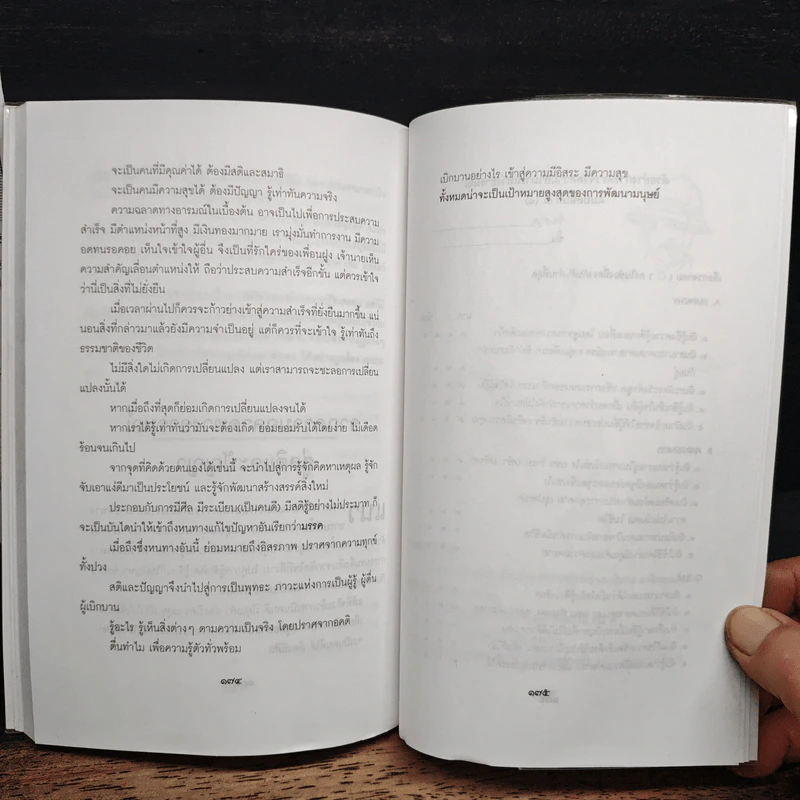 จะเป็นคนที่มีคุณค่าได้ ต้องมีสติและสมาธิ
จะเป็นคนมีความสุขได้ ต้องมีปัญญา รู้เท่าทันความจริง
ความฉลาดทางอารมณ์ในเบื้องต้น อาจเป็นไปเพื่อการประสบความ
สำเร็จ มีตำแหน่งหน้าที่สูง มีเงินทองมากมาย เรามุ่งมั่นทำการงาน มีความ
อดทนรอคอย เห็นใจเข้าใจผู้อื่น จึงเป็นที่รักใคร่ของเพื่อนฝูง เจ้านายเห็น
ความสำคัญเลื่อนตำแหน่งให้ ถือว่าประสบความสำเร็จอีกขั้น แต่ควรเข้าใจ
ว่านี่เป็นสิ่งที่ไม่ยั่งยืน
เมื่อเวลาผ่านไปก็ควรจะก้าวย่างเข้าสู่ความสำเร็จที่ยั่งยืนมากขึ้น แน่
นอนสิ่งที่กล่าวมาแล้วยังมีความจำเป็นอยู่ แต่ก็ควรที่จะเข้าใจ รู้เท่าทันถึง
ธรรมชาติของชีวิต
ไม่มีสิ่งใดไม่เกิดการเปลี่ยนแปลง แต่เราสามารถจะชะลอการเปลี่ยน
แปลงนั้นได้
หากเมื่อถึงที่สุดก็ย่อมเกิดการเปลี่ยนแปลงจนได้
หากเราได้รู้เท่าทันว่ามันจะต้องเกิด ย่อมยอมรับได้โดยง่าย ไม่เดือด
ร้อนจนเกินไป
จากจุดที่คิดด้วยตนเองได้เช่นนี้ จะนำไปสู่การรู้จักคิดหาเหตุผล รู้จัก
จับเอาแง่ดีมาเป็นประโยชน์ และรู้จักพัฒนาสร้างสรรค์สิ่งใหม่
ประกอบกับการมีศีล มีระเบียบ(เป็นคนดี) มีสติรู้อย่างไม่ประมาท ก็
จะเป็นบันไดนำให้เข้าถึงหนทางแก้ไขปัญหาอันเรียกว่ามรรค
เมื่อถึงซึ่งหนทางอันนี้ ย่อมหมายถึงอิสรภาพ ปราศจากความทุกข์
ทั้งปวง
สติและปัญญาจึงนำไปสู่การเป็นพุทธะ ภาวะแห่งการเป็นผู้รู้ ผู้ตื่น
ผู้เบิกบาน
รู้อะไร รู้เห็นสิ่งต่างๆ ตามความเป็นจริง โดยปราศจากอคติ
ตื่นทำไม เพื่อความรู้ตัวทั่วพร้อม
๑๗๔
เบิกบานอย่างไร เข้าสู่ความมีอิสระ มีความสุข
ทั้งหมดน่าจะเป็นเป้าหมายสูงสุดของการพัฒนามนุษย์
๑๗๕